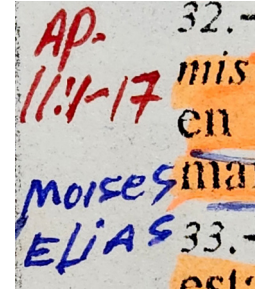 AP.
11:1-17
MOISES
ELiAS
32.-
mis
en
mar
33.-
esta